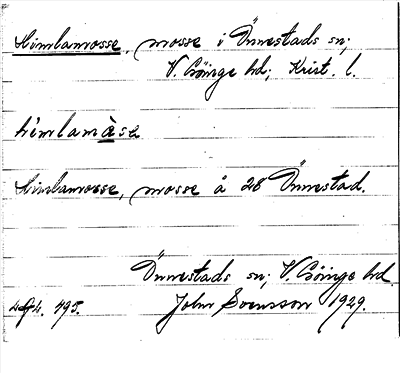 Himlamosse, mosse i Önnestads sn;
V. Göinge hd; Krist. l.
hìmlamàse
Himlamosse, mosse å 28 Önnestad.
Önnestads sn; V. Göinge hd.
495. John Svensson 1929.